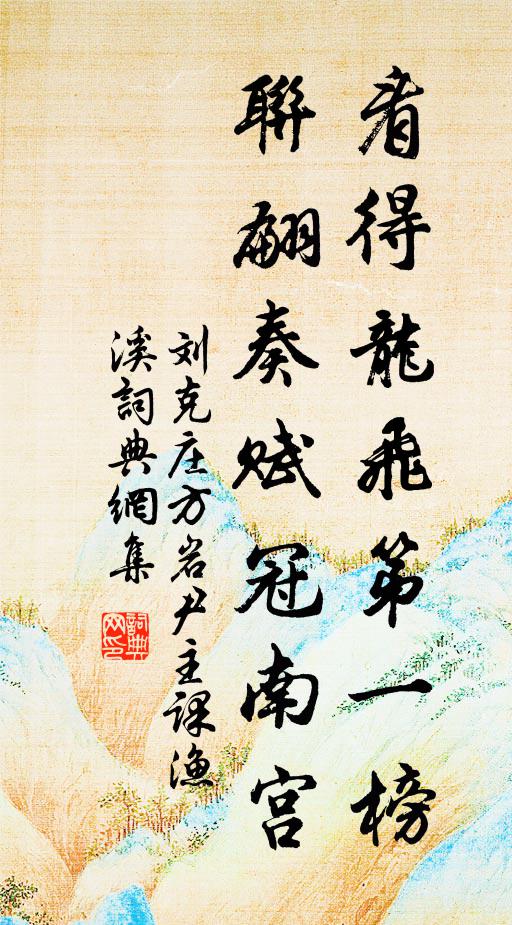 看得龍飛第一榜
聯翩奏賦冠南宫
刘克庄方岩尹主课渔
溪詞典網集
詞典
网印